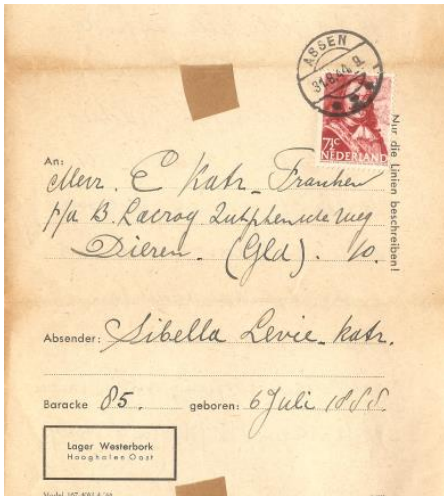 ASSEN
31.8.
7½C
NEDERLAND
Nur die Linien beschreiben!
An:
Mevr. E Katz-Franken
p/a B. Lacroy Zutphenscheweg
Dieren. (Gld). 10.
Absender: Sibella Levie-Katz.
Baracke 85. geboren: 6 Juli 1888.
Lager Westerbork
Hooghalen Oost